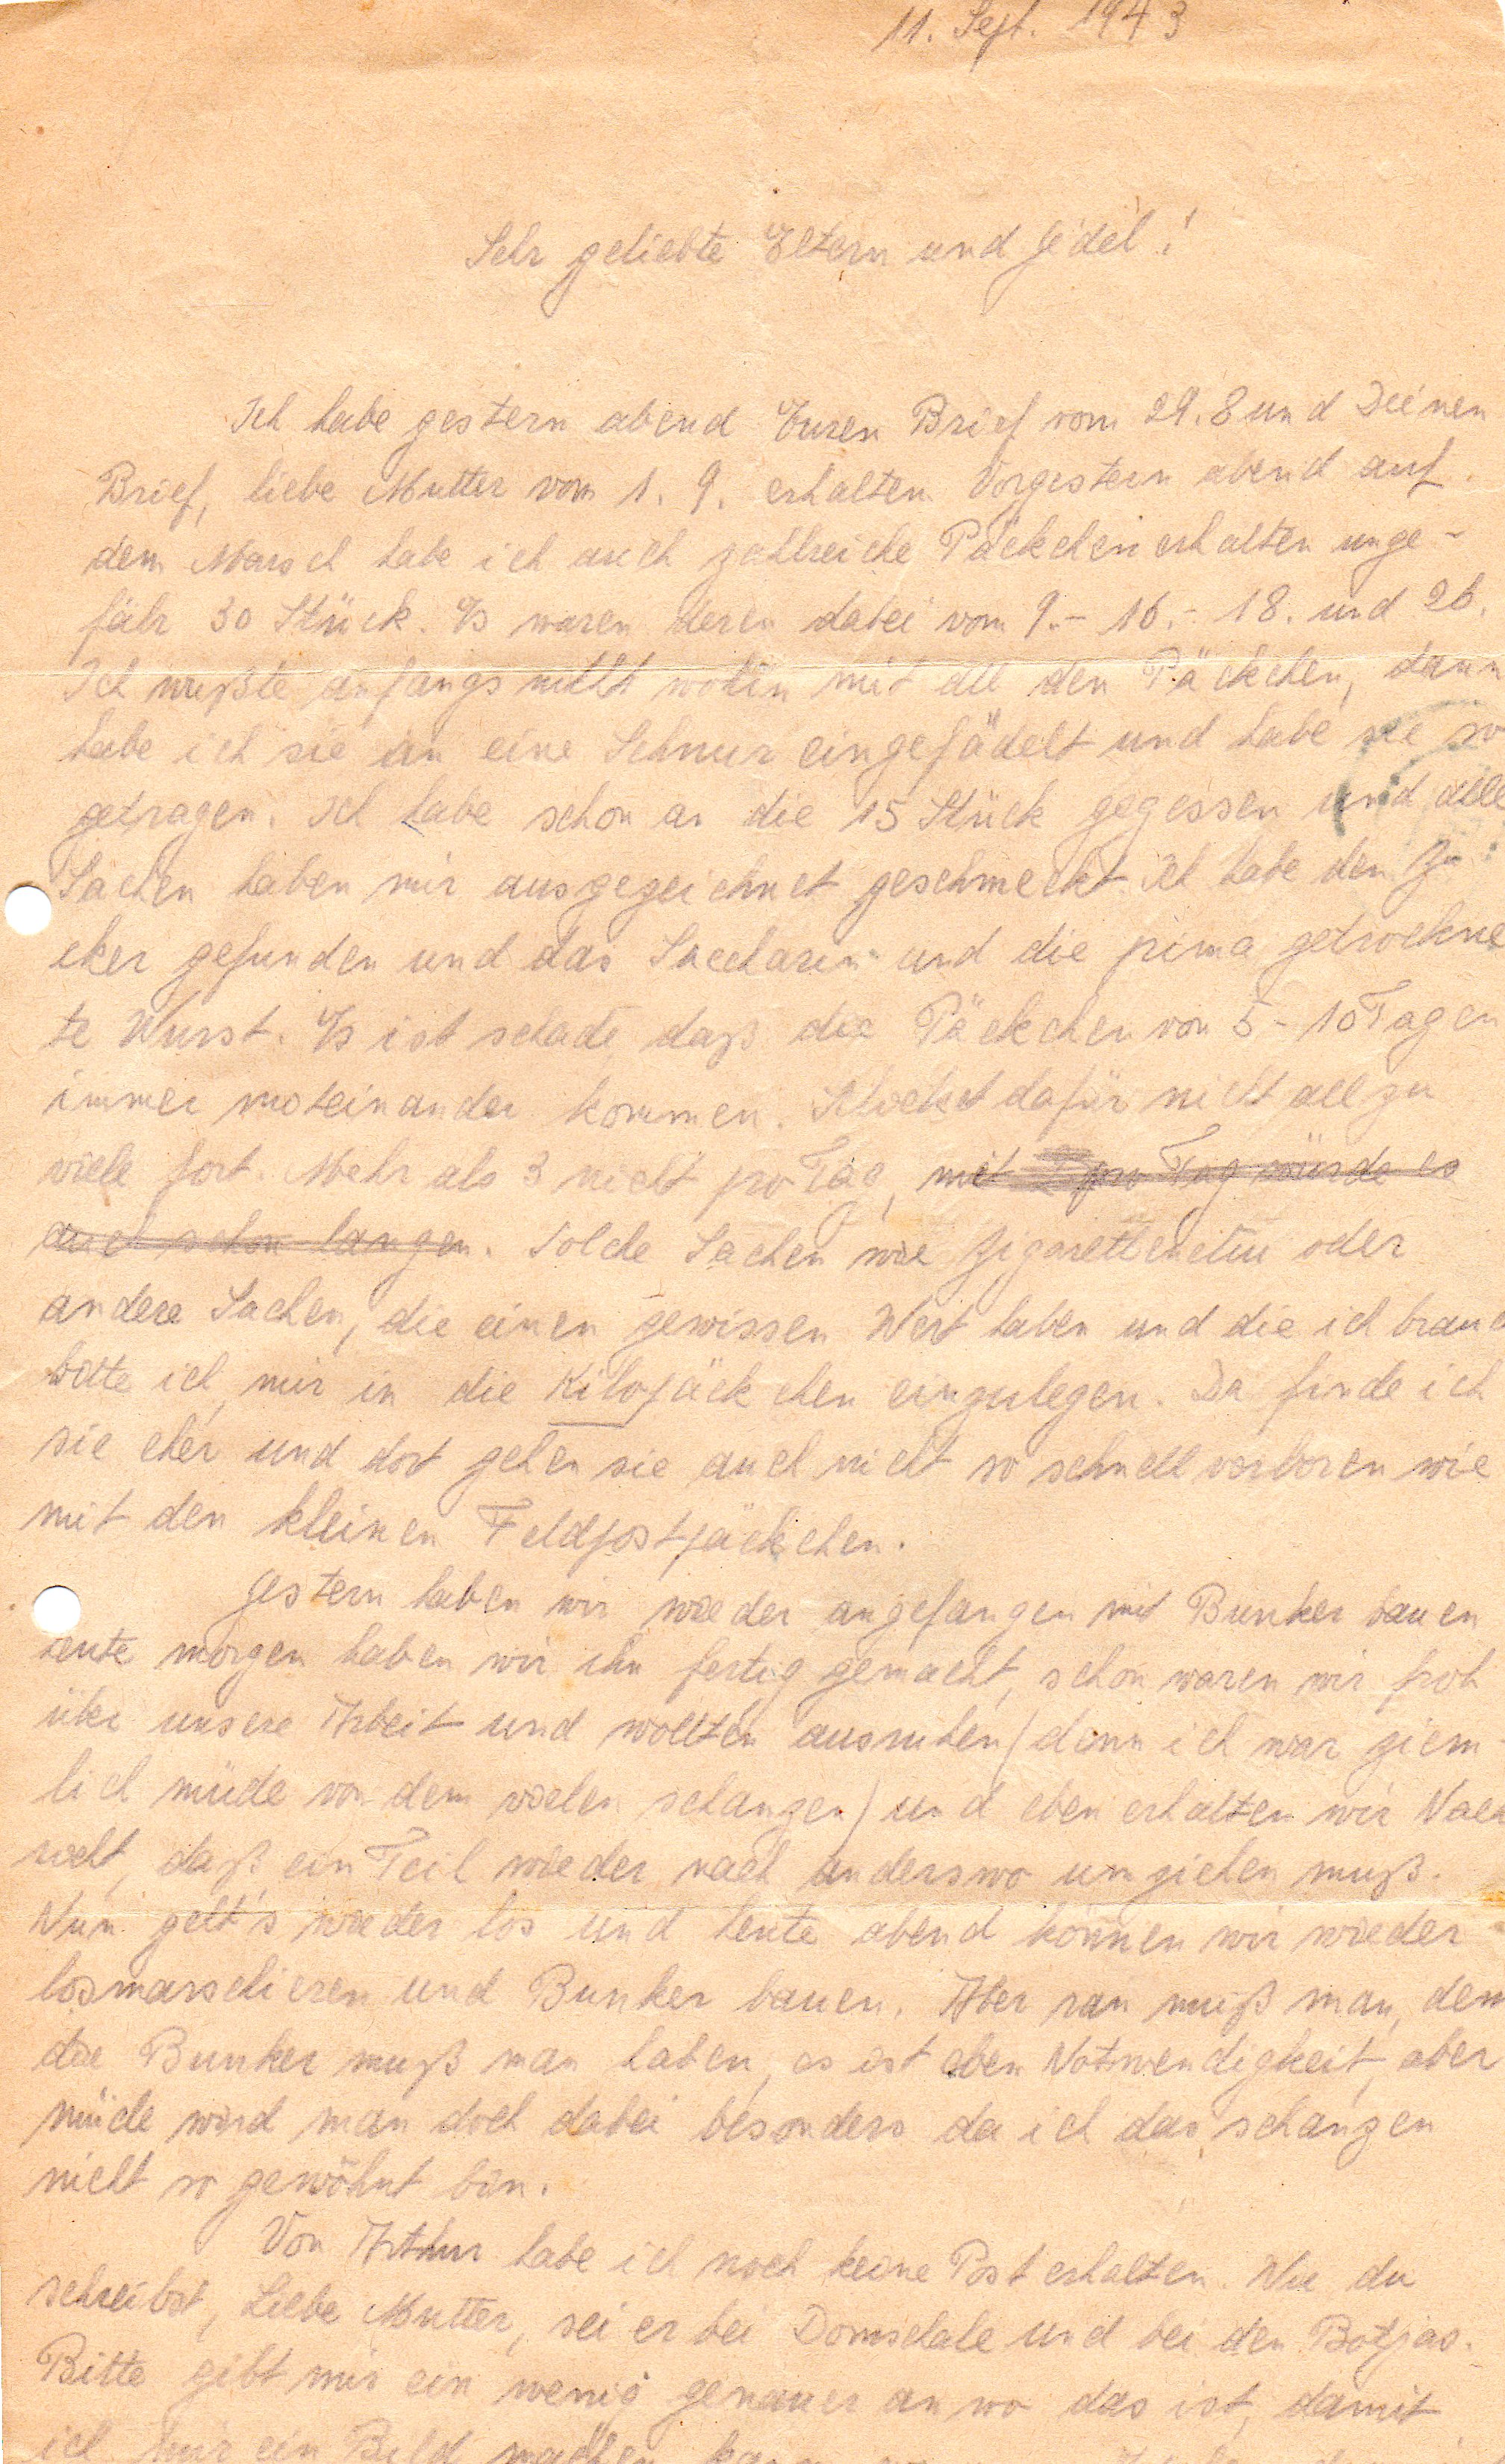 11. Sept. 1943
Sehr geliebte Eltern und Jédél!
Ich habe gestern abend Euren Brief vom 29.8 und Deinen
Brief, liebe Mutter vom 1. 9. erhalten. Vorgestern abend auf
dem Marsch habe ich auch zahlreiche Päckchen erhalten unge-
fähr 30 Stück. Es waren deren dabei vom 9.- 16.- 18. und 26.
Ich wußte anfangs nicht wohin mit all den Päckchen, dann
habe ich sie an eine Schnur eingefädelt und habe sie so
getragen. Ich habe schon an die 15 Stück gegessen und alle
Sachen haben mir ausgezeichnet geschmeckt. Ich habe den Zu-
cker gefunden und das Saccharin und die prima getrockne
te Wurst. Es ist schade daß die Päckchen von 5 - 10 Tagen
immer miteinander kommen. Schicket dafür nicht allzu
viele fort. Mehr als 3 nicht pro Tag, mit 2 pro Tag würde es
auch schon langen. Solche Sachen wie Zigarettenetui oder
andere Sachen, die einen gewissen Wert haben und die ich brauch
bitte ich, mir in die Kilopäckchen einzulegen. Da finde ich
sie eher und dort gehen sie auch nicht so schnell verloren wie
mit den kleinen Feldpostpäckchen.
Gestern haben wir wieder angefangen mit Bunker bauen
heute morgen haben wir ihn fertig gemacht, schon waren wir froh
über unsere Arbeit und wollten ausruhen (denn ich war ziem-
lich müde von dem vielen schanzen) und eben erhalten wir Nach
richt, daß ein Teil wieder nach anderswo umziehen muß.
Nun geht's wieder los und heute abend können wir wieder
losmarschieren und Bunker bauen. Aber ran muß man, denn
die Bunker muß man haben, es ist eben Notwendigkeit, aber
müde wird man doch dabei besonders da ich das schanzen
nicht so gewöhnt bin.
Von Arthur habe ich noch keine Post erhalten. Wie du
schreibst, Liebe Mutter, sei er bei Domschale und bei den
Bitte gibt mir ein wenig genauer an wo das ist, damit
ich mir ein Bild machen kann